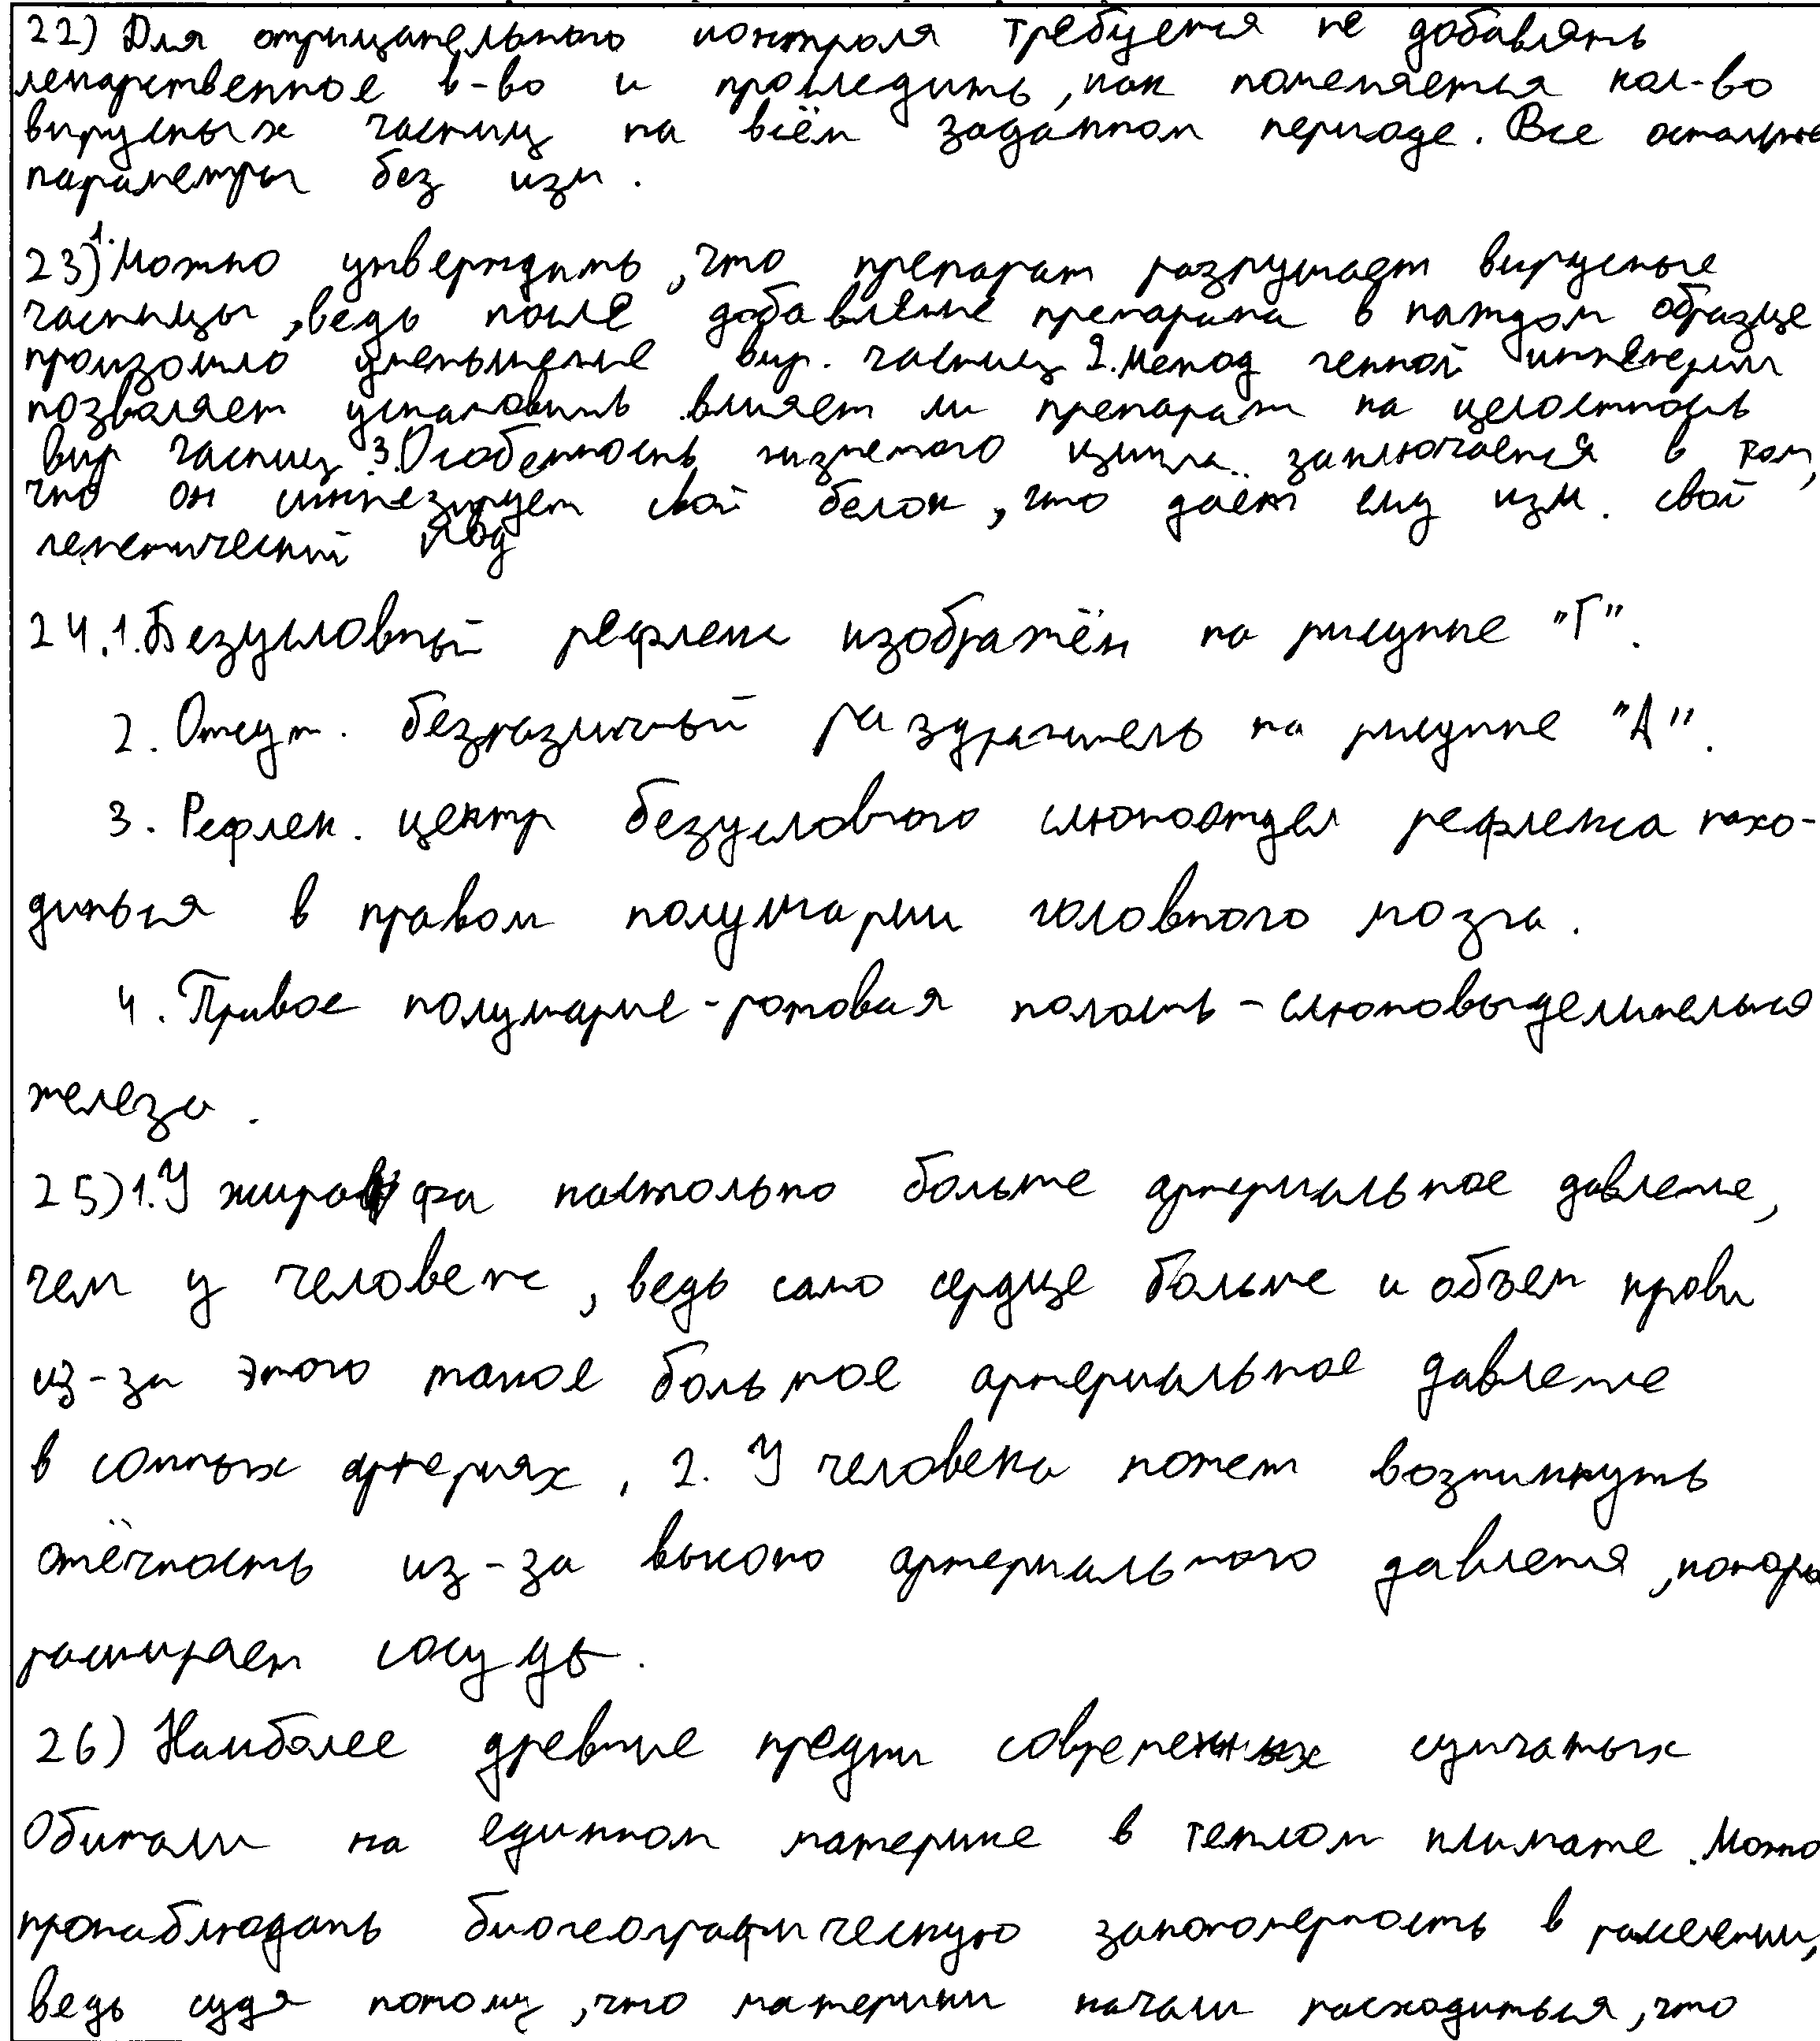 22) Для отрицательного контроля требуется не добавлять
лекарственное в-во и проследить, как поменяется кол-во
вирусных частиц на всём заданном периоде. Все остальные
параметры без изм.
23) 1. Можно утвердить, что препарат разрушает вирусные
частицы, ведь после добавление препарата в каждом образце
произошло уменьшение вир. частиц 2. Метод генной инженерии
позволяет установить влияет ли препарат на целостность
вир частиц 3. Особенность жизненого цикла заключается в том,
что он синтезирует свой белок, что даёт ему изм. свой
генетический код
24. 1. Безусловный рефлекс изображён на рисунке "Г".
2. Отсут. безразличный раздражитель на рисунке "А".
3. Рефлек. центр безусловного слюноотдел рефлекса нахо-
диться в правом полушарии головного мозга.
4. Правое полушарие - ротовая полость - слюновыделительная
железа.
25) 1. У жирафа настолько больше артериальное давление,
чем у человека, ведь само сердце больше и объем крови
из-за этого такое большое артериальное давление
в сонных артериях, 2. У человека может возникнуть
отёчность из-за высоко артериального давления, которое
расширяет сосуды.
26) Наиболее древние предки современных сумчатых
Обитали на едином материке в теплом климате. Можно
пронаблюдать биогеографическую закономерность в расселении,
ведь судя потому, что материки начали расходиться, что